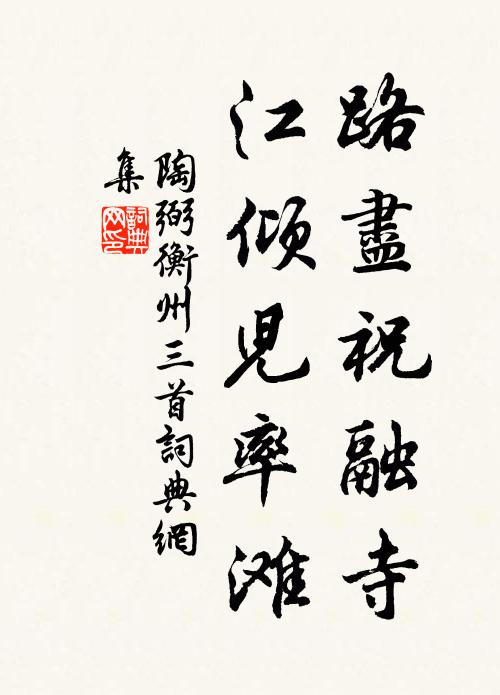 路盡祝融寺
江傾児率滩
陶弼衡州三首詞典網
集
詞典
网印